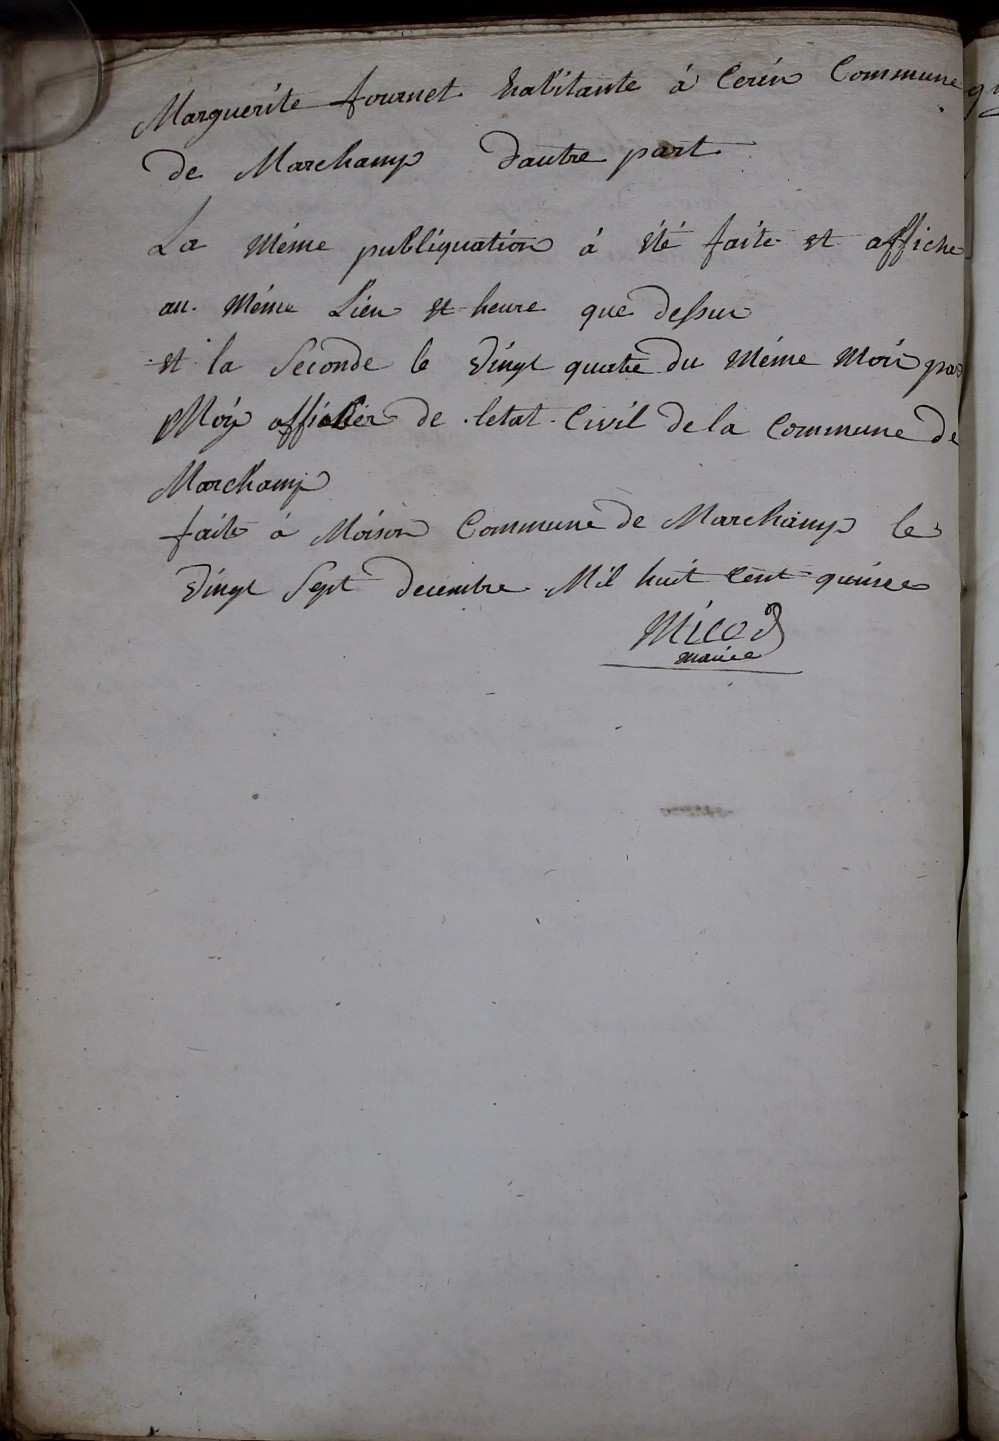 Marguerite fournet habitante á Cerin Commune
de Marchamp dautre part
La Méme publiquation á été faite et affiche
au Méme Lieu et heure que dessus
et la Seconde le Vingt quatre du Méme Mois par
Moy officier de letat Civil de la Commune de
Marchamp
faite á Maison Commune de Marchamp le
Vingt Sept decembre Mil huit Cent quinze
maire